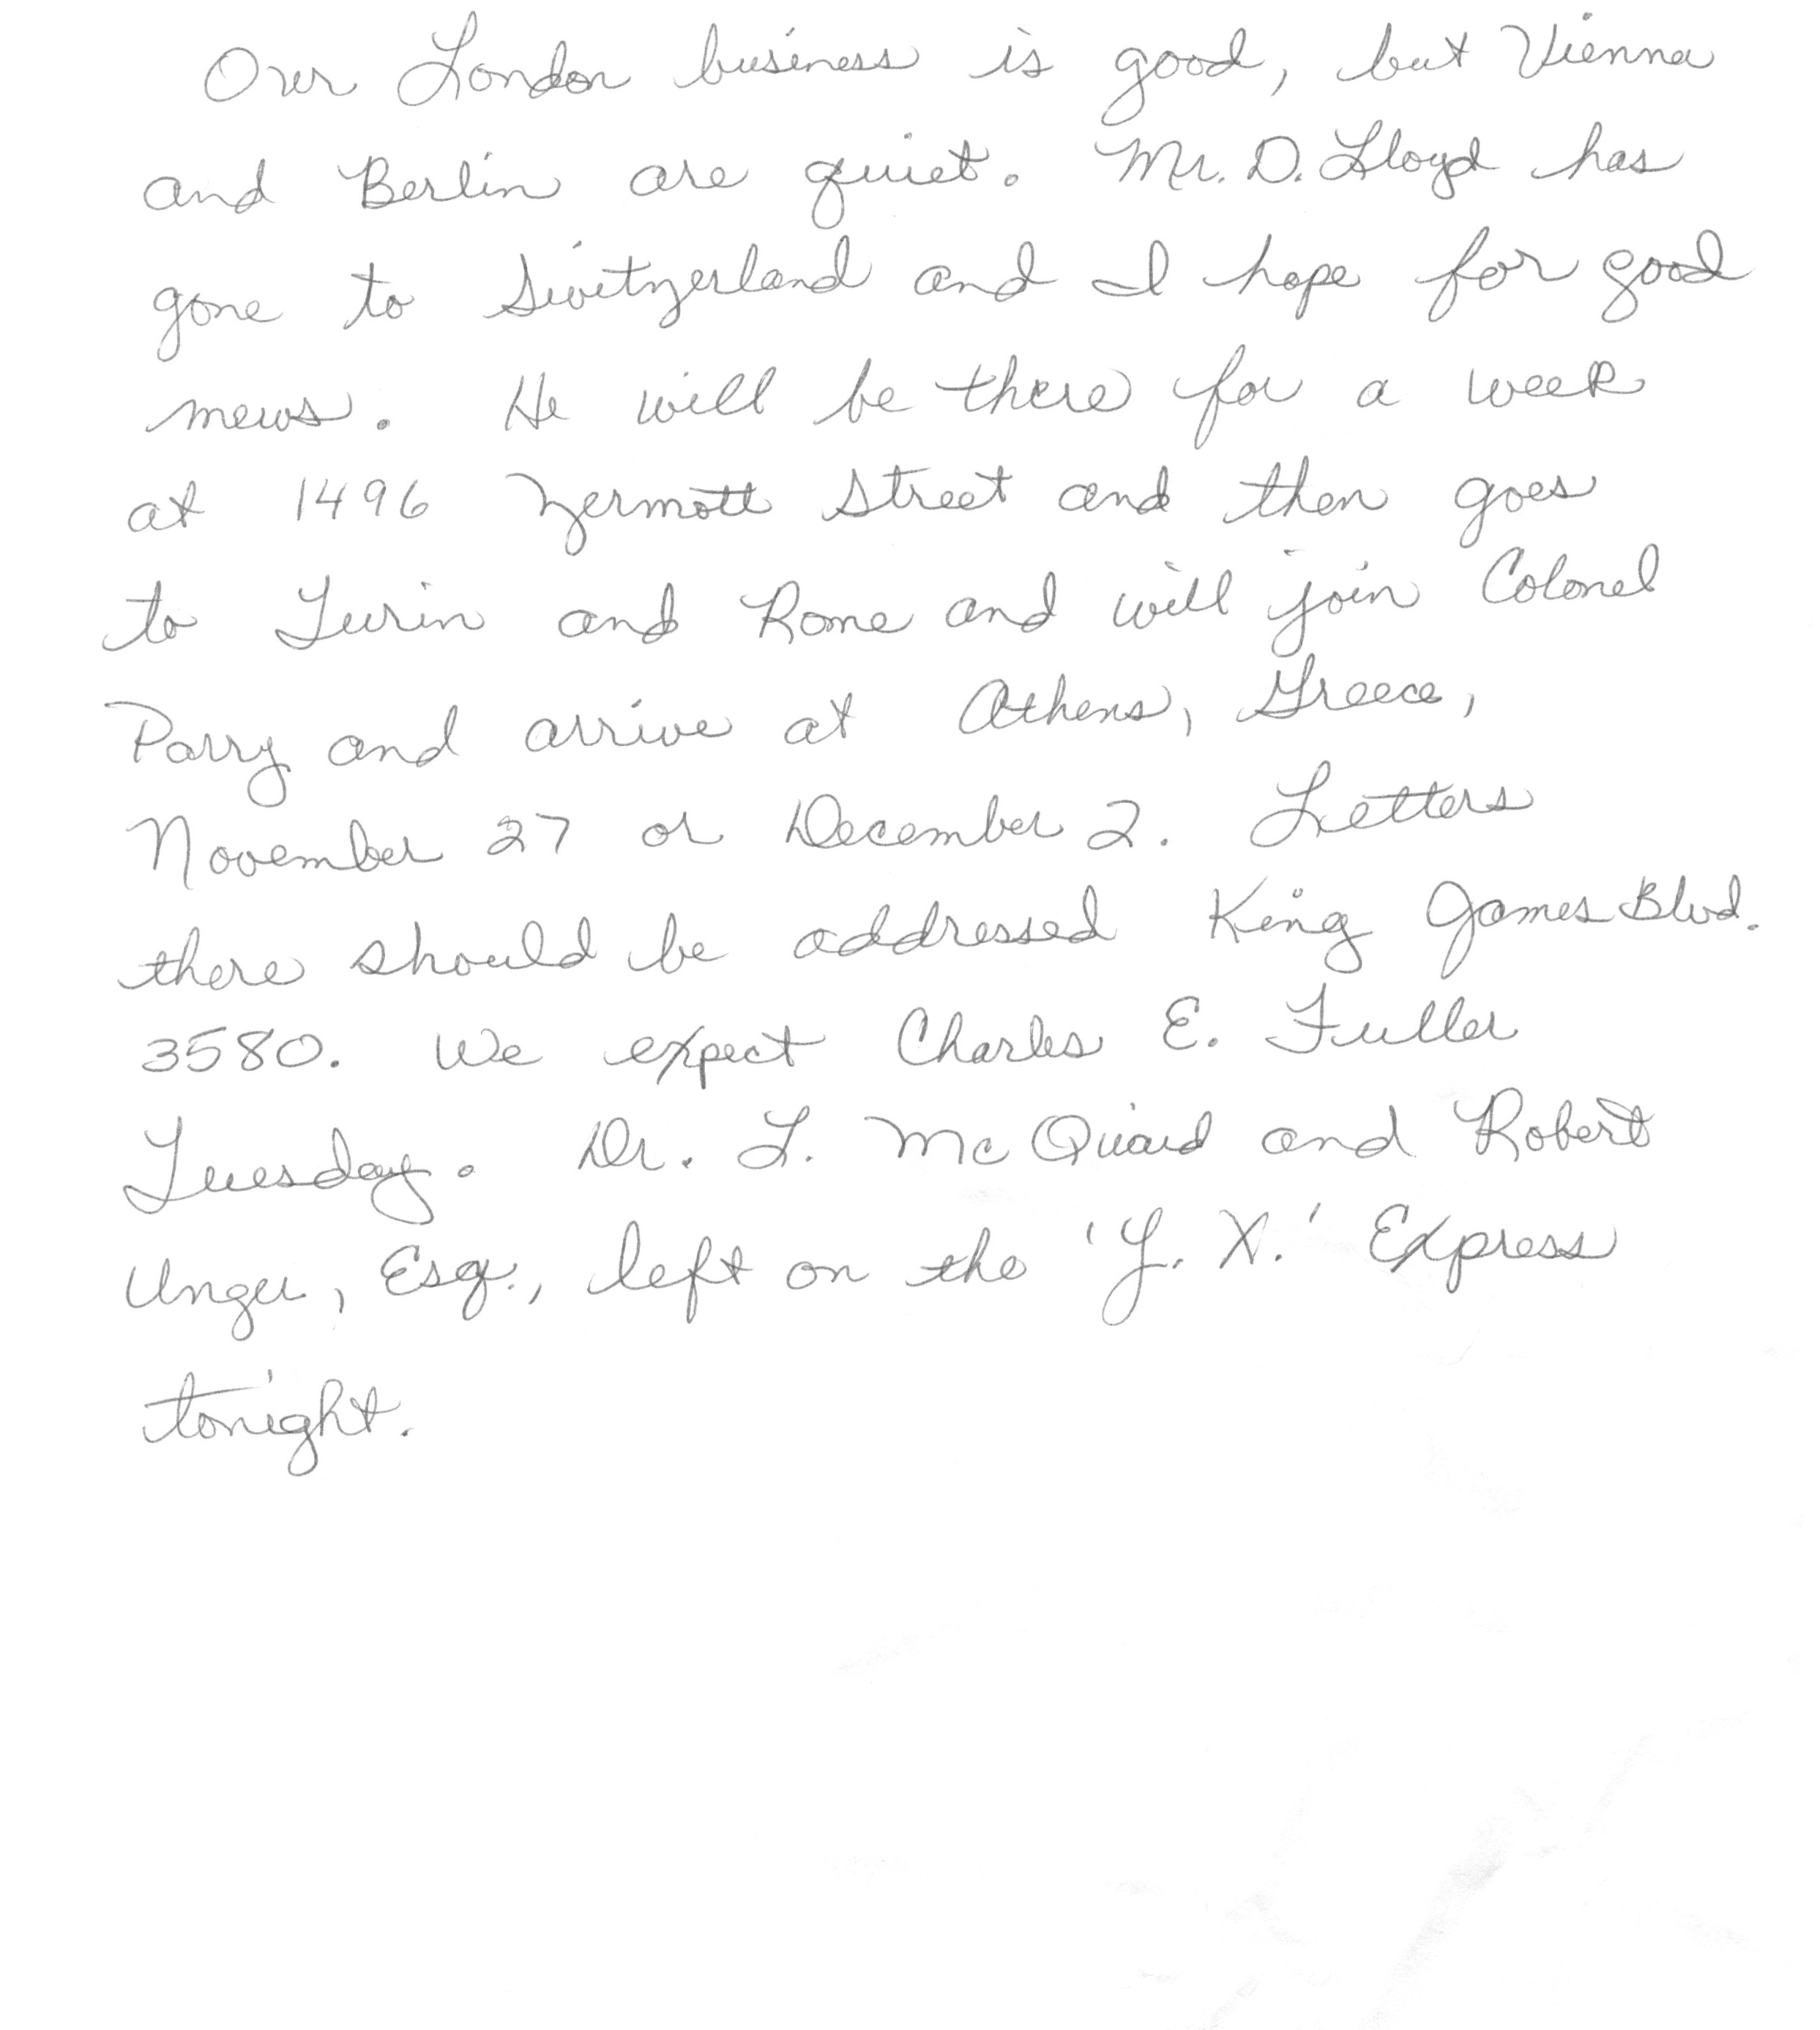 Our London business is good, but Vienna
and Berlin are quiet. Mr. D. Lloyd has
gone to Switzerland and I hope for good
news. He will be there for a week
at 1496 Zermott Street and then goes
to Turin and Rome and will join Colonel
Parry and arrive at Athens, Greece,
November 27 or December 2. Letters
there should be addressed King James Blvd.
3580. We expect Charles E. Fuller
Tuesday. Dr. L. McQuaid and Robert
Unger, Esq., left on the 'Y. X.' Express
tonight.